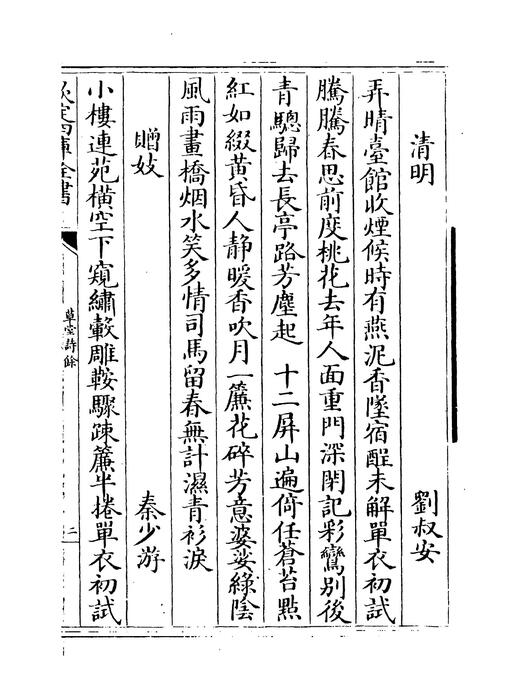 清明 劉叔安
弄晴臺館收煙候時有燕泥香墜宿酲未解單衣初試
騰騰春思前度桃花去年人面重門深閉記彩鸞别後
青驄歸去長亭路芳塵起 十二屏山遍倚任蒼苔點
紅如綴黄昏人静暖香吹月一簾花碎芳意婆娑綠陰
風雨畫橋烟水笑多情司馬留春無計濕青衫淚
贈妓 秦少游
小樓連苑横空下窺繡轂雕鞍驟疎簾半捲單衣初試
欽定四庫全書
草堂詩餘
二